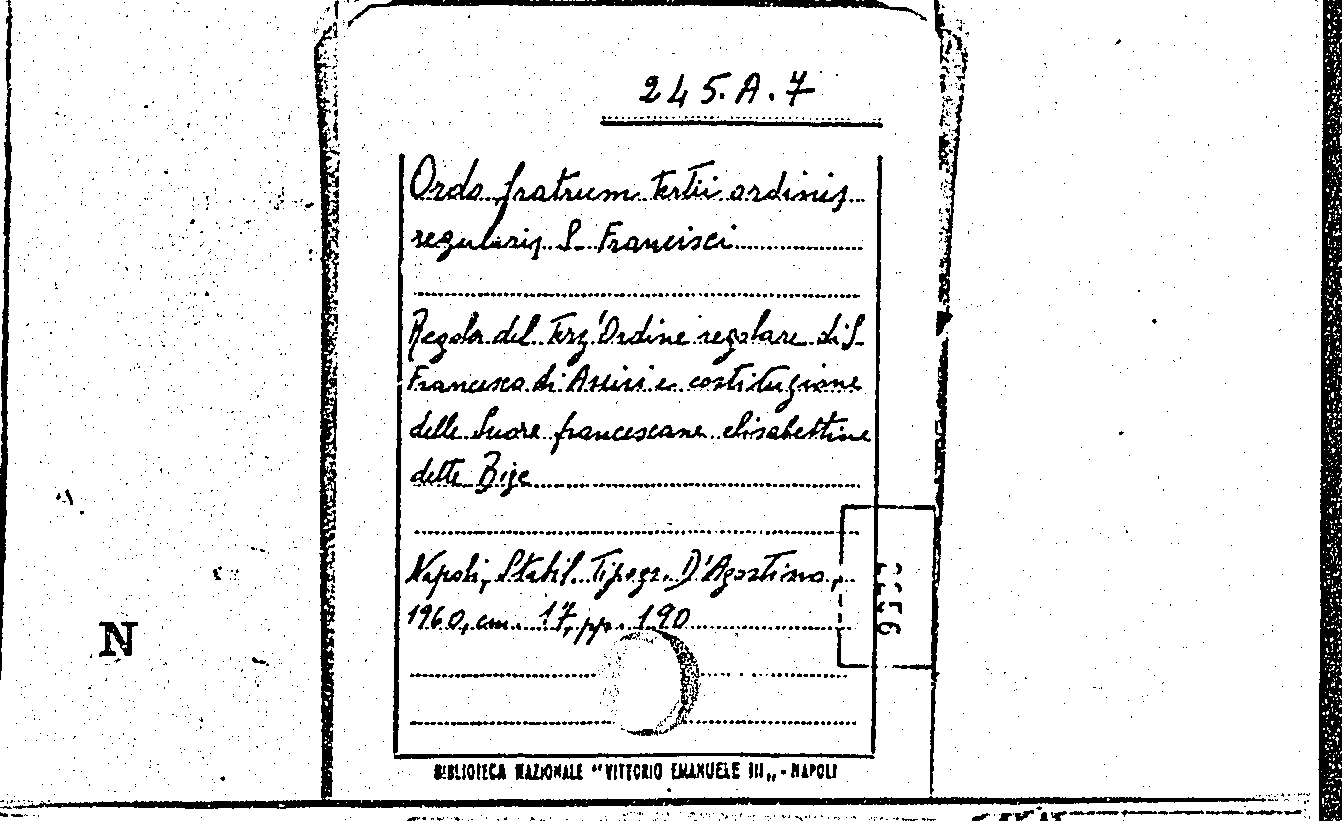 245.A.7
Ordo fratrum tertii ordinis
regularis S. Francisci
Regola del Terz'Ordine regolare di S.
Francesco di Assisi e costituzione
delle Suore francescane elisabettine
dette Bige
Napoli, Stabil. Tipogr. D'Agostino,
1960, cm. 17, pp. 190
N
BIBLIOTECA NAZIONALE "VITTORIO EMANUELE III„ - NAPOLI